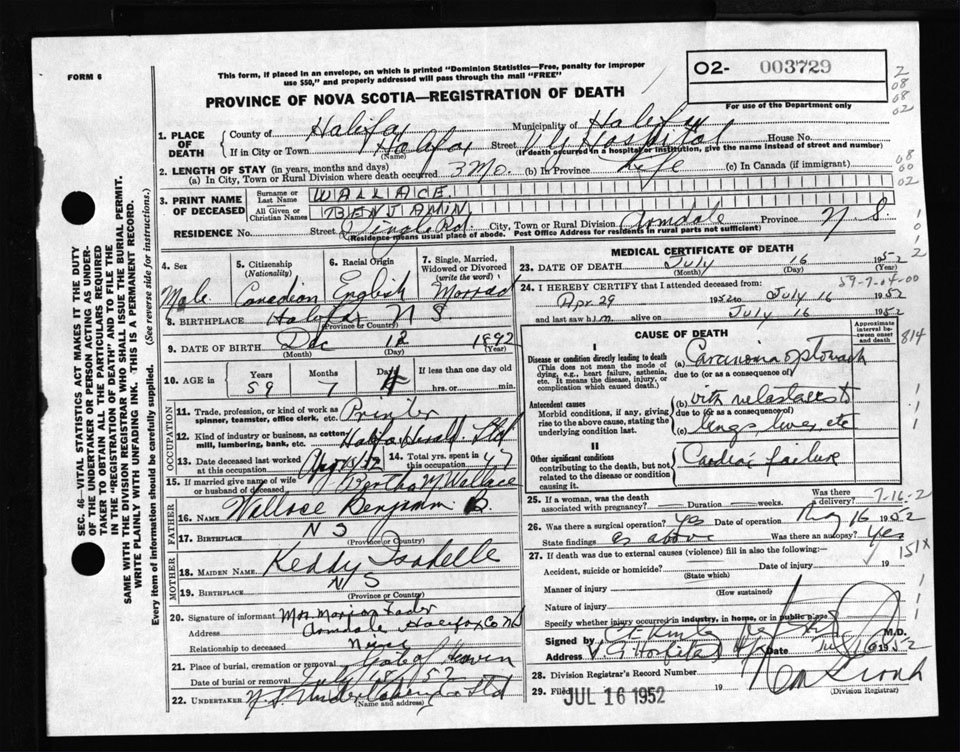 FORM 6
This form, if placed in an envelope, on which is printed "Dominion Statistics—Free, penalty for improper
use $50," and properly addressed will pass through the mail "FREE"
O2- 003729
For use of the Department only
PROVINCE OF NOVA SCOTIA—REGISTRATION OF DEATH
SEC. 46—VITAL STATISTICS ACT MAKES IT THE DUTY
OF THE UNDERTAKER OR PERSON ACTING AS UNDER-
TAKER TO OBTAIN ALL THE PARTICULARS REQUIRED
IN THE "REGISTRATION OF DEATH" AND TO FILE THE
SAME WITH THE DIVISION REGISTRAR WHO SHALL ISSUE THE BURIAL PERMIT.
WRITE PLAINLY WITH UNFADING INK. THIS IS A PERMANENT RECORD.
Every item of information should be carefully supplied. (See reverse side for instructions.)
1. PLACE OF DEATH
County of Halifax Municipality of Halifax
If in City or Town Halifax Street V G Hospital House No.
(Name) (If death occurred in a hospital or institution, give the name instead of street and number)
2. LENGTH OF STAY (in years, months and days)
(a) In City, Town or Rural Division where death occurred 3 Mo. (b) In Province Life (c) In Canada (if immigrant)
3. PRINT NAME OF DECEASED
Surname or Last Name WALLACE
All Given or Christian Names BENJAMIN
RESIDENCE No. Street City, Town or Rural Division Armdale Province N S.
(Residence means usual place of abode. Post Office Address for residence in rural parts not sufficient)
4. Sex Male
5. Citizenship (Nationality) Canadian
6. Racial Origin English
7. Single, Married, Widowed or Divorced (write the word) Married
8. BIRTHPLACE Halifax N S
(Province or Country)
9. DATE OF BIRTH Dec 12 1892
(Month) (Day) (Year)
10. AGE in Years 59 Months 7 Days 4 If less than one day
hrs. or min.
OCCUPATION
11. Trade, profession, or kind of work as spinner, teamster, office clerk, etc. Printer
12. Kind of industry or business, as cotton mill, lumbering, bank, etc. Halifax Herald Ltd
13. Date deceased last worked at this occupation 14. Total yrs. spent in this occupation 47
15. If married give name of wife or husband of deceased M Wallace
FATHER
16. Name Wallace Benjamin B.
17. Birthplace N S
(Province or Country)
MOTHER
18. Maiden Name Keddy Isabelle
19. Birthplace N S
(Province or Country)
20. Signature of informant Mrs. Marion Fader
Address Armdale Halifax Co N S
Relationship to deceased Niece
21. Place of burial, cremation or removal Gate of Heaven
Date of burial or removal July 52
22. Undertaker N.S. Undertaking Co Ltd
(Name and address)
MEDICAL CERTIFICATE OF DEATH
23. DATE OF DEATH July 16 1952
(Month) (Day) (Year)
24. I HEREBY CERTIFY that I attended deceased from:
Apr. 29 1952 to July 16 1952
and last saw him alive on July 16 1952
CAUSE OF DEATH
Approximate interval between onset and death
I
Disease or condition directly leading to death
(This does not mean the mode of dying, e.g., heart failure, asthenia, etc. It means the disease, injury, or complication which caused death.)
(a) Carcinoma of stomach
due to (or as a consequence of)
Antecedent causes
Morbid conditions, if any, giving rise to the above cause, stating the underlying condition last.
(b) with metastases to
due to (or as a consequence of)
(c) lungs liver, etc
II
Other significant conditions
contributing to the death, but not related to the disease or condition causing it
Cardiac failure
25. If a woman, was the death associated with pregnancy? Duration weeks. Was there a delivery?
26. Was there a surgical operation? Yes Date of operation May 16 1952
State findings as above Was there an autopsy? Yes
27. If death was due to external causes (violence) fill in also the following:—
Accident, suicide or homicide? Date of injury 19
(State which)
Manner of injury
(How sustained)
Nature of injury
Specify whether injury occurred in industry, in home, or in public place
Signed by M.D.
Address V. G Hospital Hfx Date July 1952
28. Division Registrar's Record Number
29. Filed JUL 16 1952
(Division Registrar)
2
08
08
02
08
00
02
59-7-04-00
814
7-16-2
151X